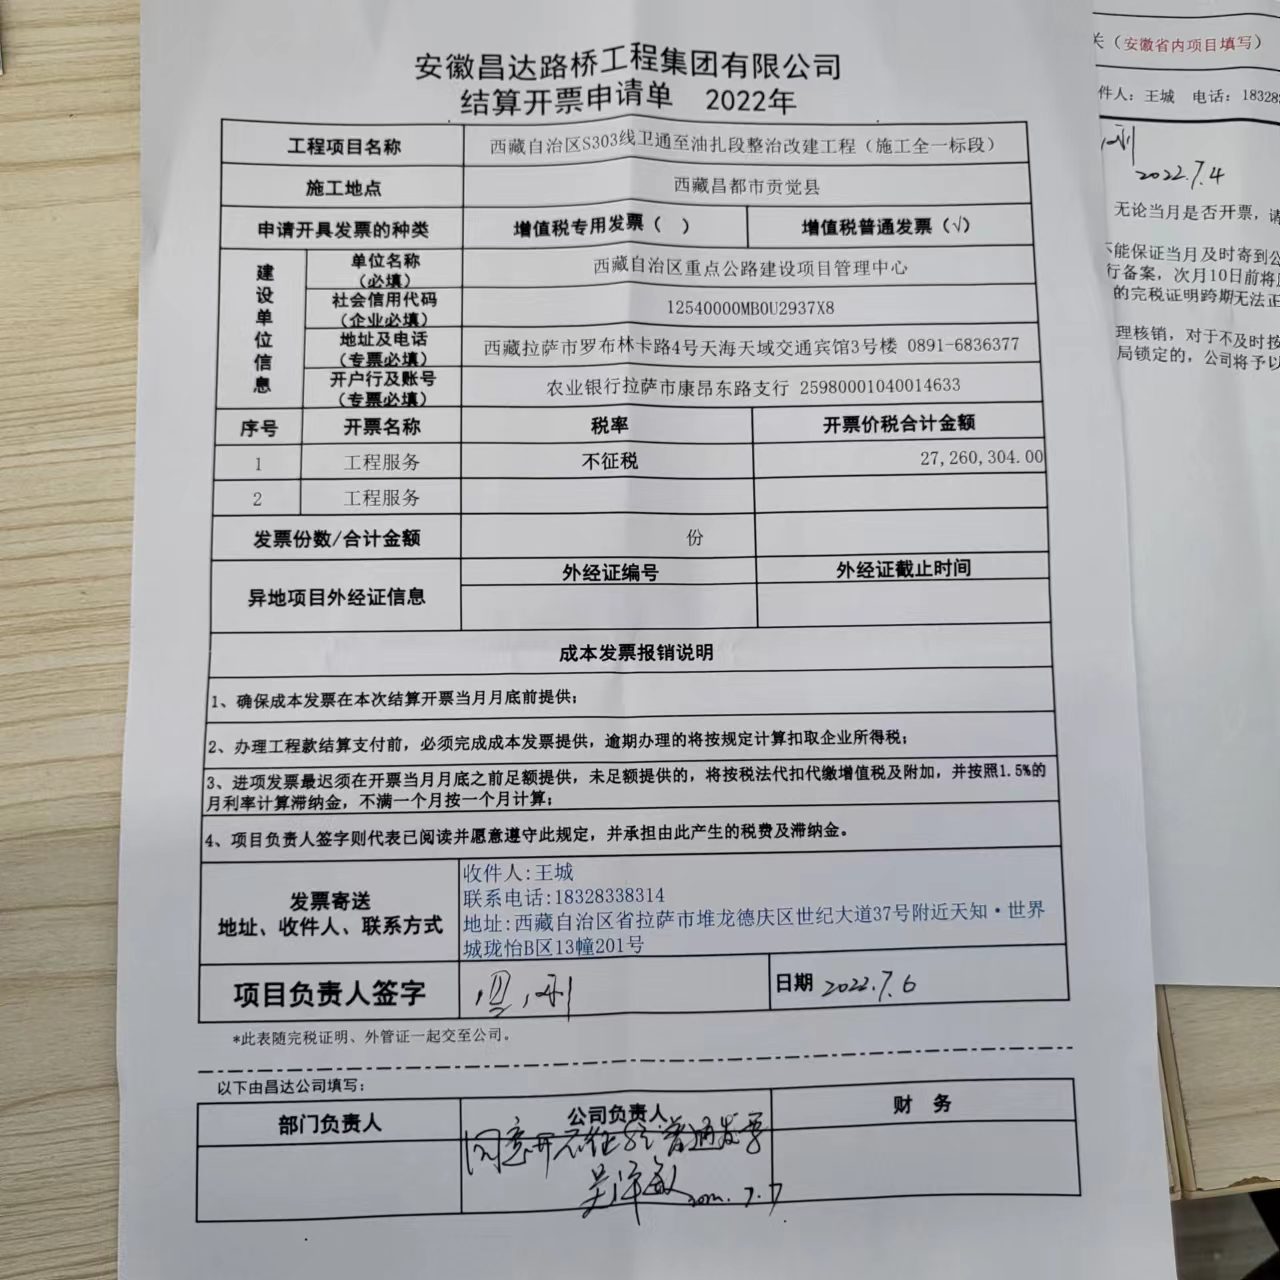 安徽昌达路桥工程集团有限公司
结算开票申请单 2022年
工程项目名称 西藏自治区S303线卫通至油扎段整治改建工程（施工全一标段）
施工地点 西藏昌都市贡觉县
申请开具发票的种类 增值税专用发票（ ） 增值税普通发票（√）
建设单位信息
单位名称（必填） 西藏自治区重点公路建设项目管理中心
社会信用代码（企业必填） 12540000MB0U2937X8
地址及电话（专票必填） 西藏拉萨市罗布林卡路4号天海天域交通宾馆3号楼 0891-6836377
开户行及账号（专票必填） 农业银行拉萨市康昂东路支行 25980001040014633
序号 开票名称 税率 开票价税合计金额
1 工程服务 不征税 27,260,304.00
2 工程服务
发票份数/合计金额 份
异地项目外经证信息 外经证编号 外经证截止时间
成本发票报销说明
1、确保成本发票在本次结算开票当月月底前提供；
2、办理工程款结算支付前，必须完成成本发票提供，逾期办理的将按规定计算扣取企业所得税；
3、进项发票最迟须在开票当月月底之前足额提供，未足额提供的，将按税法代扣代缴增值税及附加，并按照1.5%的
月利率计算滞纳金，不满一个月按一个月计算；
4、项目负责人签字则代表已阅读并愿意遵守此规定，并承担由此产生的税费及滞纳金。
发票寄送
地址、收件人、联系方式
收件人:王城
联系电话:18328338314
地址:西藏自治区省拉萨市堆龙德庆区世纪大道37号附近天知·世界
城珑怡B区13幢201号
项目负责人签字 日期 2022.7.6
*此表随完税证明、外管证一起交至公司。
以下由昌达公司填写：
部门负责人 公司负责人 财 务
同意开不征税普通发票
2022.7.7
关（安徽省内项目填写）
件人：王城 电话：18328
2022.7.4
无论当月是否开票，请
不能保证当月及时寄到公
行备案，次月10日前将
的完税证明跨期无法正
理核销，对于不及时按
局锁定的，公司将予以